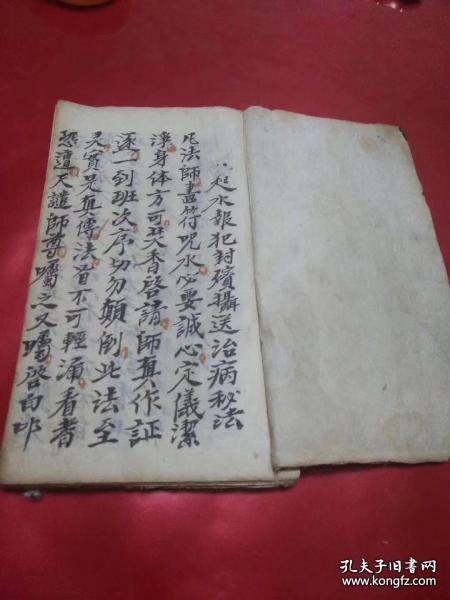 起水報犯封殯攝送治病秘法
凡法師畫符咒水必要誠心定儀潔
淨身体方可焚香啓請師真作証
逐一到班次序切勿顛倒此法至
灵實是真傳法旨不可輕涌看者
恐遭天譴師尊囑之又囑啓白咔
孔夫子旧书网
www.kongfz.com